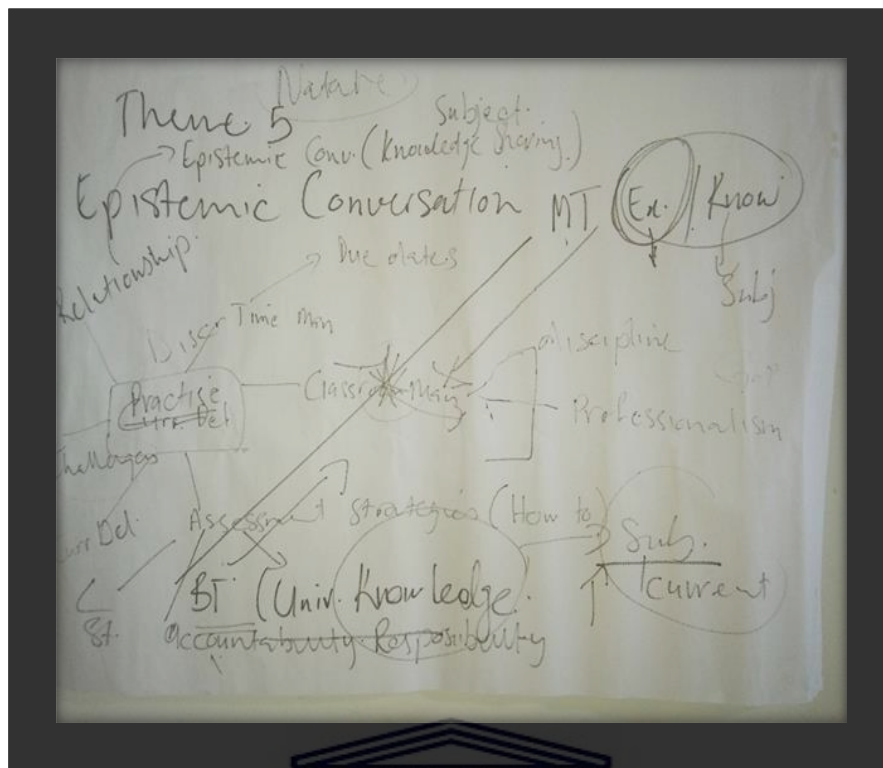 Nature
Theme 5
Subject.
Epistemic Conv. (Knowledge Sharing.)
Epistemic Conversation MT (Ex. / Know
Relationship.
Due dates
Subj
Time Man
discipline
Practise
Curr. Del
Professionalism
Challenges
Curr Del.
Assessment Strategies (How to)
Sub.
current
BT. (Univ. Knowledge.
St.
accountability Resposibility